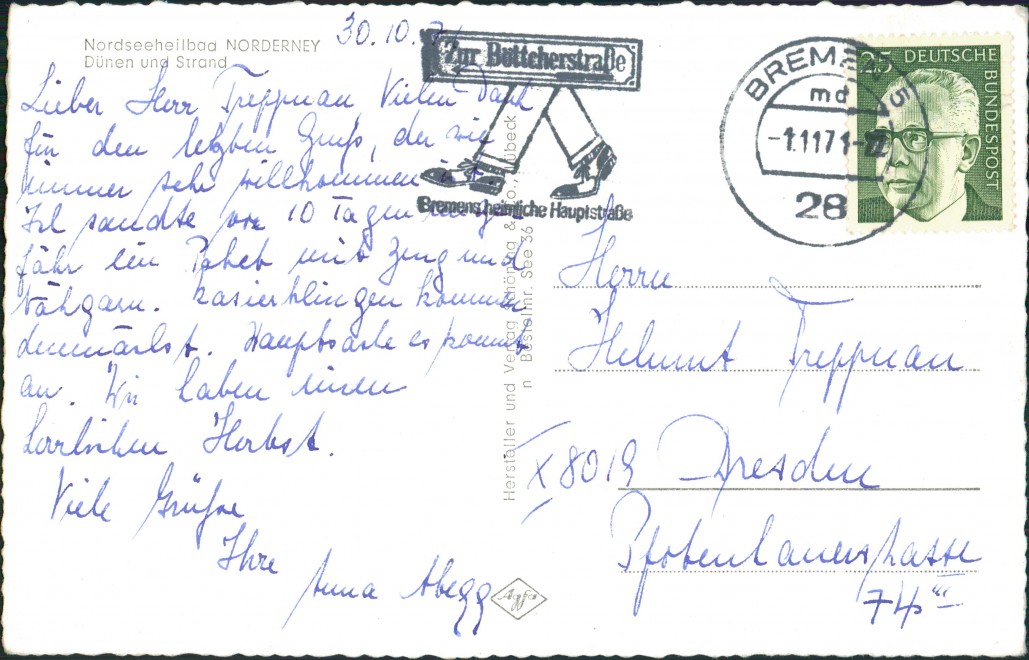 30.10.71
Nordseeheilbad NORDERNEY
Dünen und Strand
Lieber Herr Treppnau Vielen Dank
für den letzten Gruß, der wie
immer sehr willkommen ist.
Ich sandte vor 10 Tagen
fähr ein Paket mit Zeug und
Nähgarn. Rasierklingen kommen
demnächst. Hauptsache es kommt
an. Wir haben einen
herrlichen Herbst.
Viele Grüße
Ihre
Anna Abegg
Zur Böttcherstraße
Bremens heimliche Hauptstraße
BREMEN 5
md
-1.11.71-22
28
25 DEUTSCHE
BUNDESPOST
Hersteller und Verlag Schöning & Co., Lübeck
n Bestellnr. See 36
Herrn
Helmut Treppnau
X 8019 Dresden
Pfotenhauerstrasse
74 III
Agfa